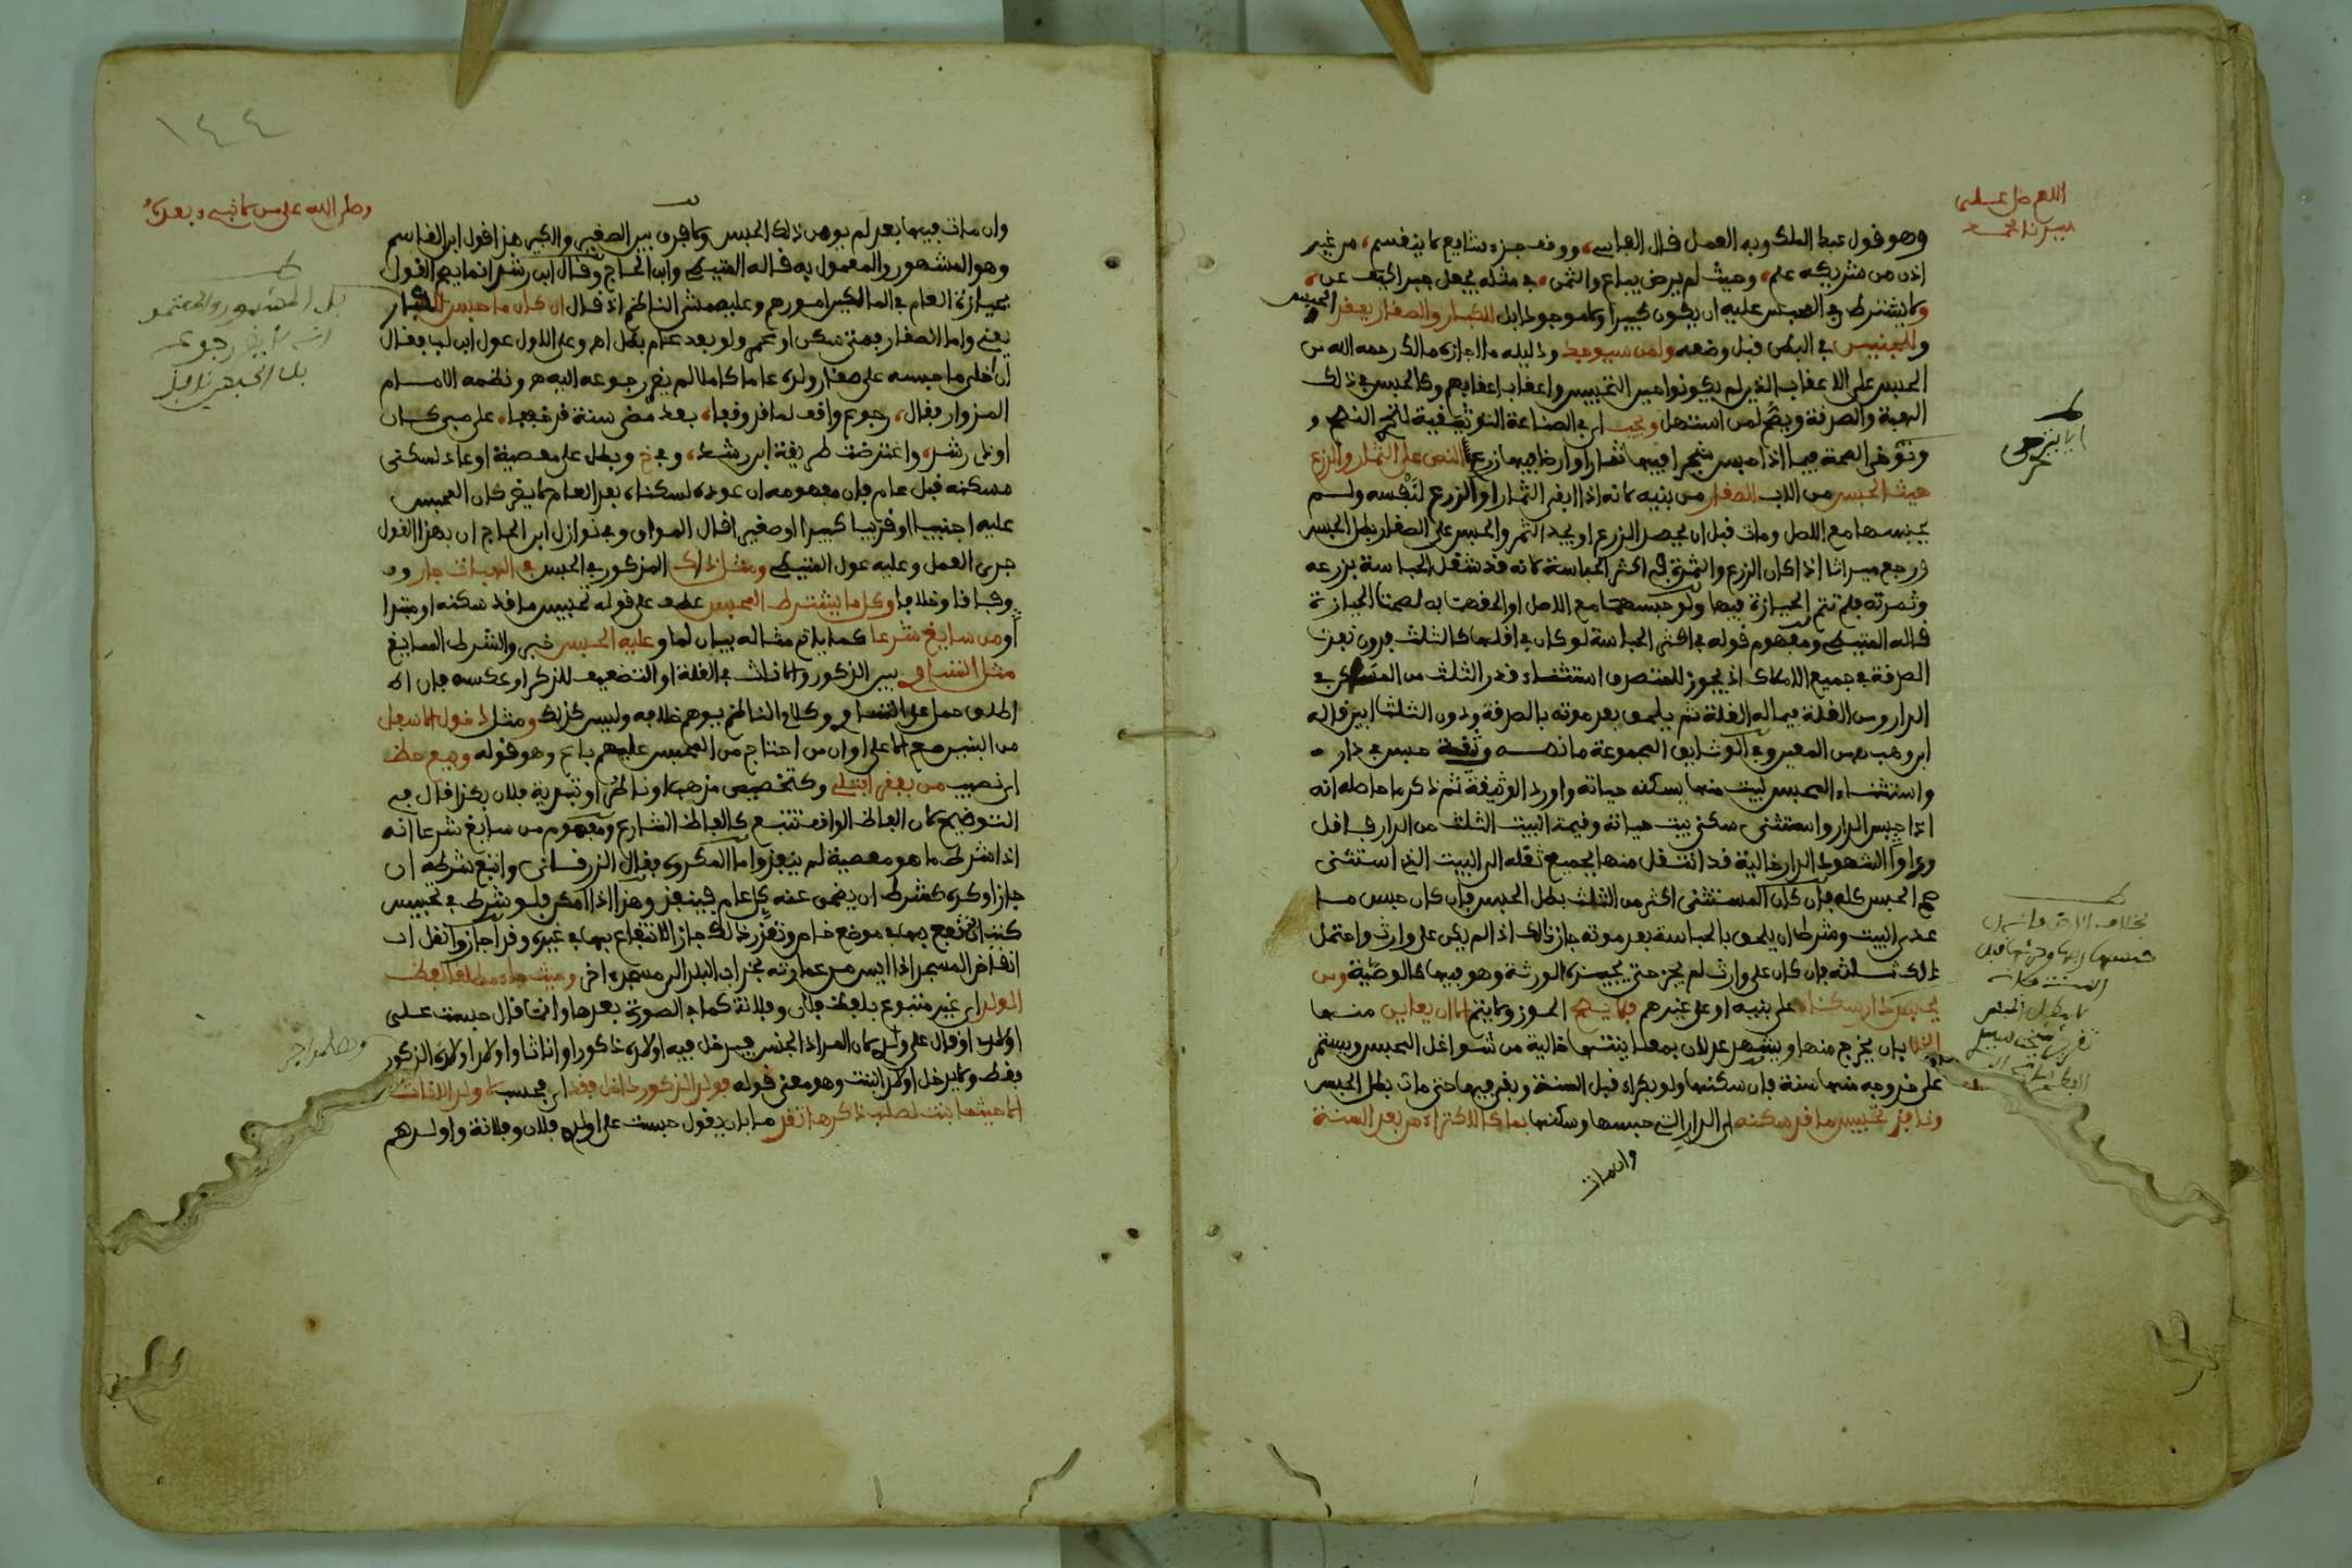 اللهم صل على
سيدنا محمد
وهو قول عبد الملك وبه العمل قال الفاسي، ووقف جزء شايع لا ينقسم، من غير
اذن من شريكه علم، وحيث لم يرض يباع والثمن، في مثله يجعل جبر الحبس عن،
ولا يشترط في المحبس عليه ان يكون كبيرا ولا موجودا بل للكبار والصغار يعقد الحبس
وللجنين في البطن قبل وضعه ولمن سيوجد ودليله ما اجازه مالك رحمه الله من
الحبس على الاعقاب الذين لم يكونوا حين التحبيس واعقاب اعقابهم وكالحبس في ذلك
الهبة والصدقة ويصح لمن استهل ويجب اي في الصناعة التوثيقية لتصحيح الفهم و
وتوخي الصحة فيما اذا حبس شجرا فيها ثمار او ارضا فيها زرع النص على الثمار والزرع
حيث الحبس من الاب للصغار من بنيه لانه اذا ابقى الثمار او الزرع لنفسه ولم
يحبسها مع الاصل ومات قبل ان يحصد الزرع او يجد الثمر والحبس على الصغار بطل الحبس
ورجع ميراثا اذا كان الزرع والثمرة في اكثر الحباسة لانه قد شغل الحباسة بزرعه
وثمرته فلم تتم الحيازة فيها ولو حبسهما مع الاصل او الحقت به لصحت الحيازة
قاله المتيطي ومفهوم قوله في اكثر الحباسة لو كان في اقلها كالثلث فدون نفذت
الصدقة في جميع الاملاك اذ يجوز للمتصدق استثناء قدر الثلث من المسكن في
الدار ومن الغلة فيما له الغلة ثم يلحق بعد موته بالصدقة ودون الثلث ابين قاله
ابن وهب من المعين وفي الوثايق المجموعة ما نصه وثيقة حبس في دار
واستثناء المحبس لبيت منها يسكنه حياته واورد الوثيقة ثم ذكر ما حاصله انه
اذا حبس الدار واستثنى سكنى بيت حياته وقيمة البيت الثلث من الدار فاقل
ورءاوا الشهود الدار خالية قد انتقل منها بجميع ثقله الى البيت الذي استثنى
صح الحبس كله فان كان المستثنى اكثر من الثلث بطل الحبس فان كان حبس ما
عدى البيت وشرط ان يلحق بالحباسة بعد موته جاز ذلك اذا لم يكن على وارث واحتمل
ذلك ثلثه فان كان على وارث لم يجز حتى يجيزه الورثة وهو فيها كالوصية ومن
يحبس دار سكناه على بنيه او على غيرهم فلا يصح الحوز ولا يتم الا ان يعاين منها
الخلا بان يخرج منها ويشهد عدلان بمعاينتها خالية من شواغل المحبس ويستمر
على خروجه منها سنة فان سكنها ولو بكراء قبل السنة وبقي فيها حتى مات بطل الحبس
ونافذ تحبيس ما قد سكنه اي الدار التي حبسها وسكنها بما كالاكتراء من بعد السنة
وان مات
١٤٤
وصلى الله على من لا نبي بعده
وان مات فيها بعد لم يوهن ذلك الحبس ولا فرق بين الصغير والكبير هذا قول ابن القاسم
وهو المشهور والمعمول به قاله المتيطي وابن الحاج وقال ابن رشد انما يصح القول
بحيازة العام في المالكين امورهم وعليه مشى الناظم اذ قال ان كان ما حبس للكبار
يعني واما الصغار فمتى سكن او عمر ولو بعد عام بطل اهـ وعلى الاول عول ابن لب فقال
ان اخلى ما حبسه على صغار ولده عاما كاملا لم يضر رجوعه اليه اهـ ونظمه الامام
المزوار فقال، رجوع واقف لما قد وقفا، بعد مضي سنة قد خففا، على صبي كان
او ذي رشد، واعترضت طريقة ابن رشد، وفي خ وبطل على معصية او عاد لسكنى
مسكنه قبل عام فان مفهومه ان عوده لسكناه بعد العام لا يضر كان المحبس
عليه اجنبيا او قريبا كبيرا او صغيرا قال المواق وفي نوازل ابن الحاج ان بهذا القول
جرى العمل وعليه عول المتيطي ومثل ذلك المذكور في الحبس في الهبات جار
وفاقا وخلافا وكل ما يشترط المحبس عطف على قوله تحبيس ما قد سكنه او مبتدا
ومن سايغ شرعا كما ياتي مثاله بيان لما وعليه الحبس خبر والشرط السايغ
مثل التساوي بين الذكور والاناث في الغلة او التضعيف للذكر او عكسه فان
اطلق حمل على التساوي وكلام الناظم يوهم خلافه وليس كذلك ومثل دخول الاسفل
من البنين مع الاعلى او ان من احتاج من المحبس عليهم باع وهو قوله وبيع حظ
اي نصيب من بفقر ابتلي وكتخصيص مذهب او ناظر او تبدية فلان بكذا قال في
التوضيح لان الفاظ الواقف تتبع كالفاظ الشارع ومفهوم من سايغ شرعا انه
اذا شرط ما هو معصية لم ينفذ واما المكروه فقال الزرقاني واتبع شرطه ان
جاز او كره كشرط ان يضحى عنه كل عام فينفذ وهذا اذا امكن فلو شرط في تحبيس
كتب ان ينتفع بها في موضع خاص وتعذر ذلك جاز الانتفاع بها في غيره وقد اجازوا نقل
انقاض المسجد اذا ايس من عمارته بخراب البلد الى مسجد اخر وحيث جاء مطلقا لفظ
الولد اي غير متبوع بلفظ فلان وفلانة كما في الصورة بعدها وانما قال حبست على
اولادي او قال على ولدي لان المراد الجنس فيدخل فيه اولاده ذكورا او اناثا واولاد اولاده الذكور
فقط ولا يدخل اولاد البنت وهو معنى قوله فولد الذكور داخل فقد اي فحسب لا ولد الاناث
الا حيثما بنت لصلب ذكرها تقدما بان يقول حبست على اولادي فلان وفلانة واولادهم